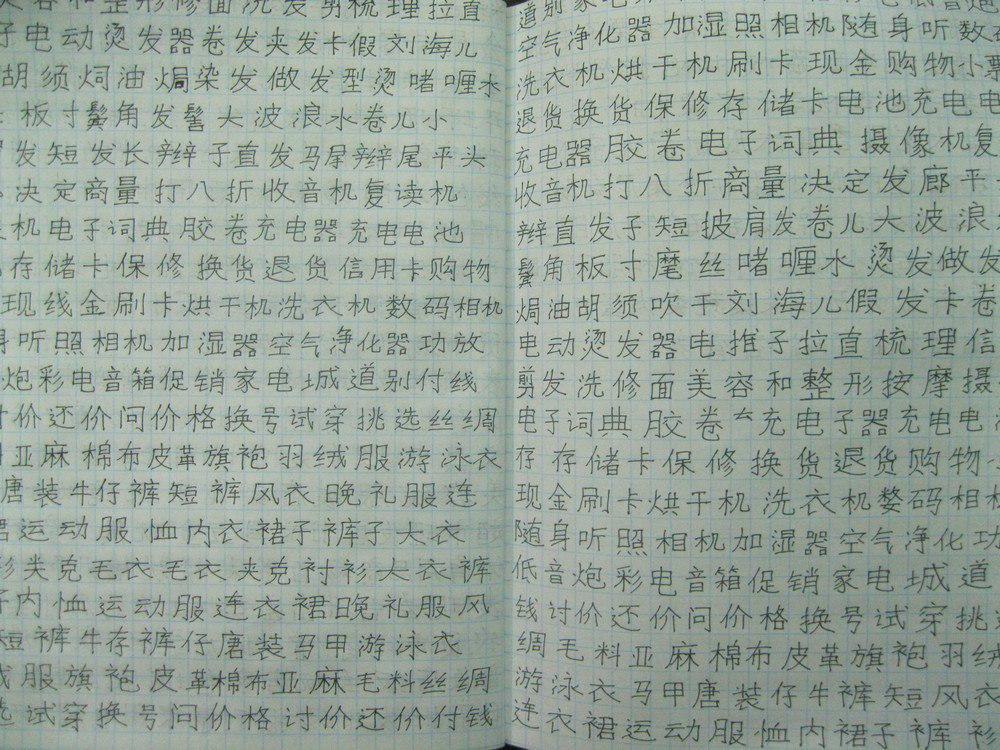 容和整形修面洗发剪梳理拉直
子电动烫发器卷发夹发卡假刘海儿
胡须焗油焗染发做发型烫啫喱水
板寸鬓角发髻大波浪水卷儿小
发短发长辫子直发马尾辫尾平头
决定商量打八折收音机复读机
机电子词典胶卷充电器充电电池
存储卡保修换货退货信用卡购物
现线金刷卡烘干机洗衣机数码相机
听照相机加湿器空气净化器功放
炮彩电音箱促销家电城道别付线
价还价问价格换号试穿挑选丝绸
亚麻棉布皮革旗袍羽绒服游泳衣
唐装牛仔裤短裤风衣晚礼服连
裙运动服恤内衣裙子裤子大衣
夹克毛衣毛衣夹克衬衫大衣裤
子内恤运动服连衣裙晚礼服风
短裤牛存裤仔唐装马甲游泳衣
绒服旗袍皮革棉布亚麻毛料丝绸
选试穿换号问价格讨价还价付钱
空气净化器加湿照相机随身听数
洗衣机烘干机刷卡现金购物小票
退货换货保修存储卡电池充电电
充电器胶卷电子词典摄像机复
收音机打八折商量决定发廊平
辫直发子短披肩发卷儿大波浪
鬓角板寸麾丝啫喱水烫发做发
焗油胡须吹干刘海儿假发卡卷
电动烫发器电推子拉直梳理信
剪发洗修面美容和整形按摩摄
电子词典胶卷充电子器充电电
存存储卡保修换货退货购物
现金刷卡烘干机洗衣机数码相
随身听照相机加湿器空气净化功
低音炮彩电音箱促销家电城道
钱讨价还价问价格换号试穿挑
绸毛料亚麻棉布皮革旗袍羽绒
游泳衣马甲唐装仔牛裤短风衣
连衣裙运动服恤内裙子裤衫